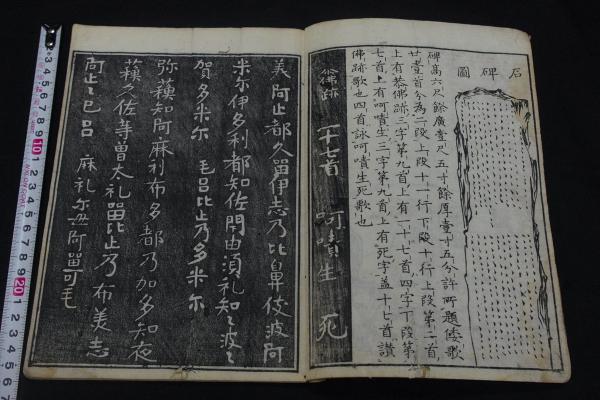 石碑圖
碑高六尺餘廣壹尺五寸餘厚壹寸五分許所題倭歌
廿壹首分為二段上段十一行下段十行上段第二首
上有恭佛跡三字第九首上有一十七首四字下段第
七首上有呵嘖生三字第九首上有死字盖十七首讃
佛跡歌也四首詠呵嘖生死歌也
恭佛跡 一十七首 呵嘖生 死
美阿止都久畱伊志乃比鼻伎波阿
米尔伊多利都知佐閇由須礼知々波々
賀多米尔 毛呂比止乃多米尔
弥蘓知阿麻利布多都乃加多知夜
蘓久佐等曽太礼畱比止乃布美志
阿止々己呂 麻礼尔母阿畱可毛
10
20